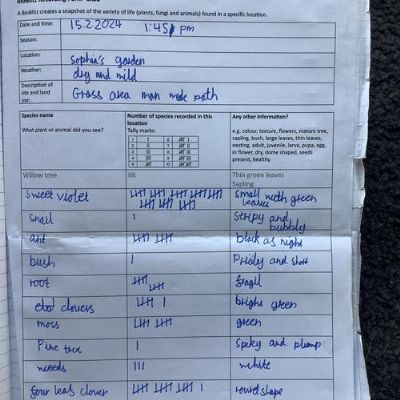 A BioBlitz creates a snapshot of the variety of life (plants, fungi and animals) found in a specific location.
Date and time: 15.2.2024 1:45 pm
Season:
Location: Sophia's garden
Weather: dry and mild
Description of site and land use: Grass area man made path
Species name
What plant or animal did you see?
Number of species recorded in this location
Tally marks:
Any other information?
e.g. colour, texture, flowers, mature tree, sapling, bush, large leaves, thin leaves, nesting, adult, juvenile, larva, pupa, egg, in flower, dry, dome shaped, seeds present, healthy.
Willow tree IIII Thin green leaves
Sapling
Sweet violet small with green
leaves
snail I Stripy and
bubbly
ant black as night
bush I Prickly and short
root
clovers bright green
moss green
Pine tree I Spiky and plump
weeds III white
four leaf clover round shape